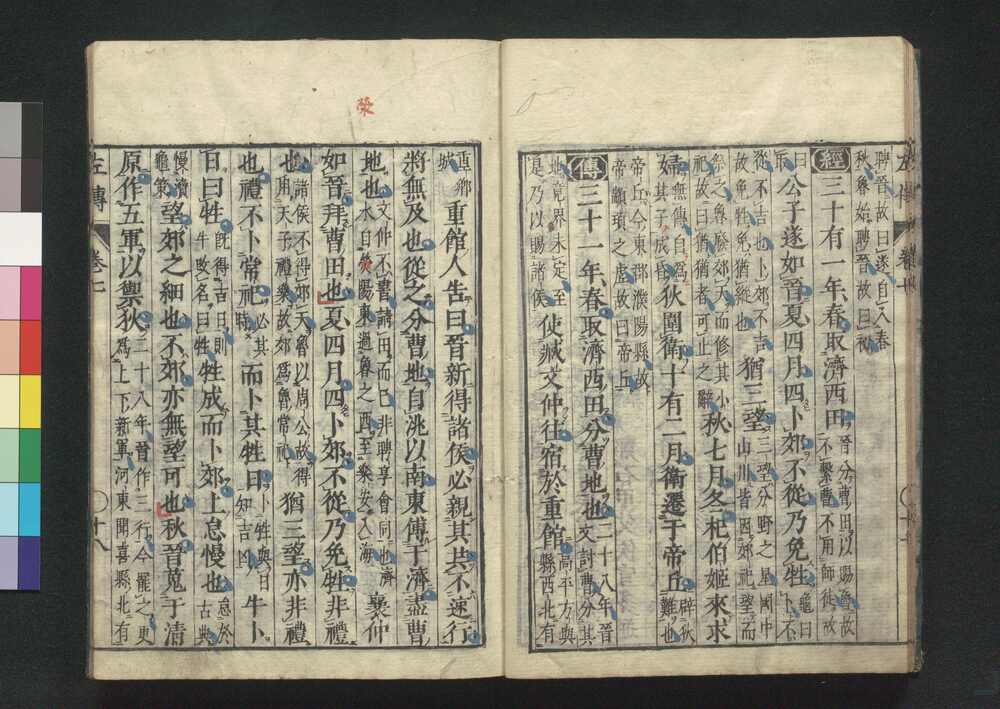 聘晉故曰遂自入春
秋魯始聘晉故曰初
經三十有一年春取濟西田晉分曹田以賜魯故
不繫曹不用師徒故
曰取公子遂如晉夏四月四卜郊不從乃免牲龜曰
卜不
從不吉也卜郊不吉
故免牲免猶縱也猶三望三望分野之星國中
山川皆因郊祀望而
祭之魯廢郊天而修其小
祀故曰猶猶者可止之辭秋七月冬杞伯姬來求
婦無傳自爲
其子成昏狄圍衛十有二月衛遷于帝丘辟狄
難也
帝丘今東郡濮陽縣故
帝顓頊之虛故曰帝丘
傳三十一年春取濟西田分曹地也二十八年晉
文討曹分其
地竟界未定至
是乃以賜諸侯使臧文仲往宿於重館高平方與
縣西北有
滎
重鄉
城重館人告曰晉新得諸侯必親其共不速行
將無及也從之分曹地自洮以南東傅于濟盡曹
地也文仲不書請田而已非聘享會同也濟
水自熒陽東過魯之西至樂安入海襄仲
如晉拜曹田也夏四月四卜郊不從乃免牲非禮
也諸侯不得郊天魯以周公故得
用天子禮樂故郊爲魯常祀猶三望亦非禮
也禮不卜常祀必其
時而卜其牲日卜牲與日
知吉凶牛卜
日曰牲既得吉日則
牛改名曰牲牲成而卜郊上怠慢也怠於
古典
慢瀆
龜策望郊之細也不郊亦無望可也秋晉蒐于清
原作五軍以禦狄二十八年晉作三行今罷之更
爲上下新軍河東聞喜縣北有
左傳 十八